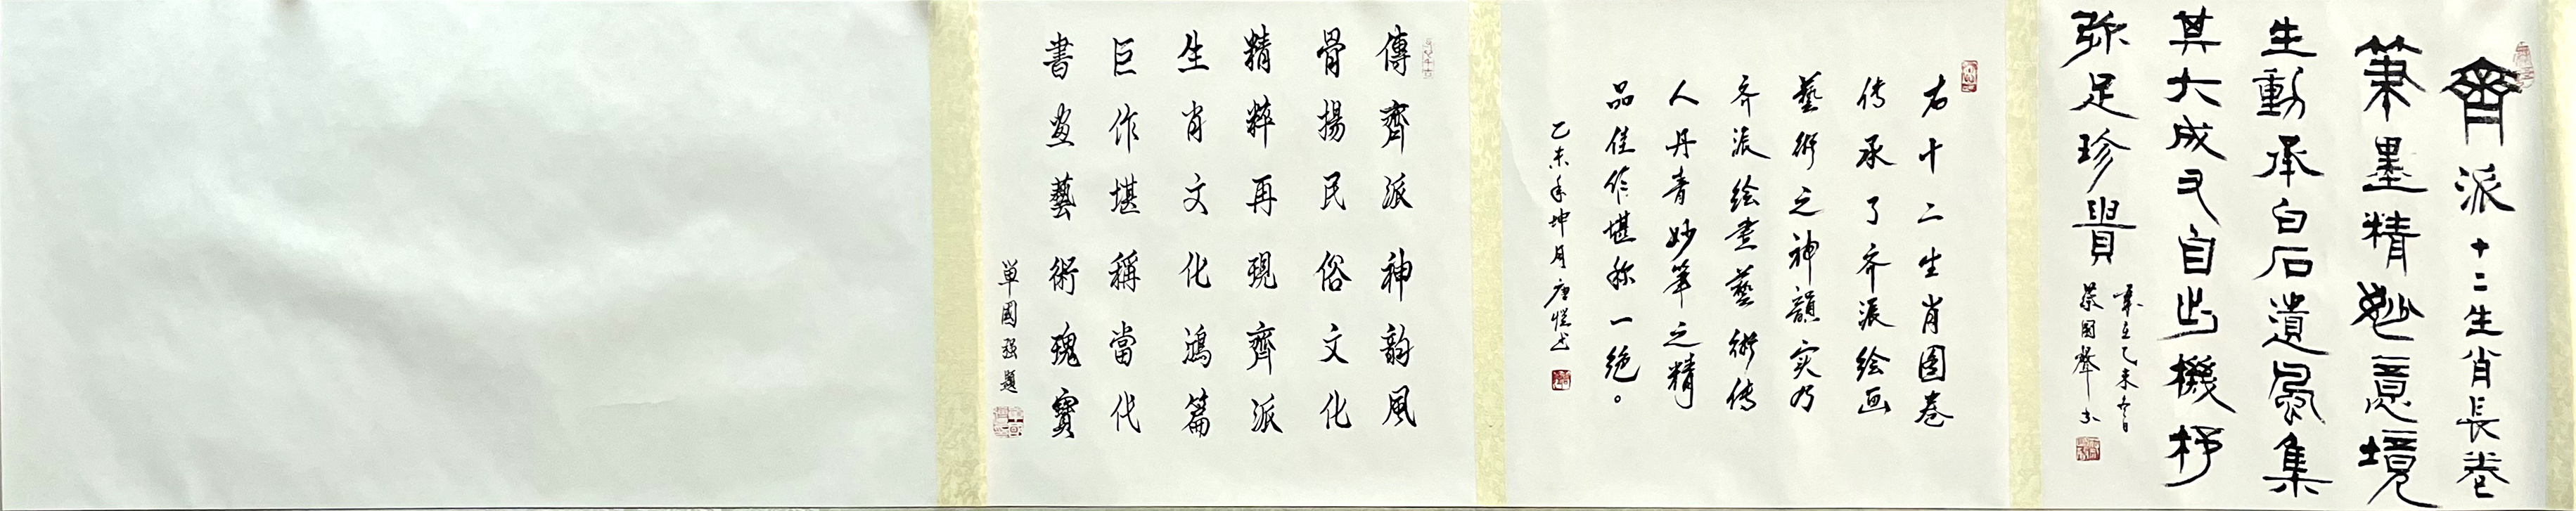 齊派十二生肖長卷
筆墨精妙意境
生動承白石遺風集
其大成又自出機杼
弥足珍貴
歲在乙未冬月
蔡國聲書
右十二生肖图卷
传承了齐派绘画
藝術之神韻实乃
齐派绘畫藝術传
人丹青妙筆之精
品佳作堪称一绝。
乙未年坤月唐愷书
傳齊派神韵風
骨揚民俗文化
精粹再現齊派
生肖文化鴻篇
巨作堪稱當代
書畫藝術瑰寶
單國强題